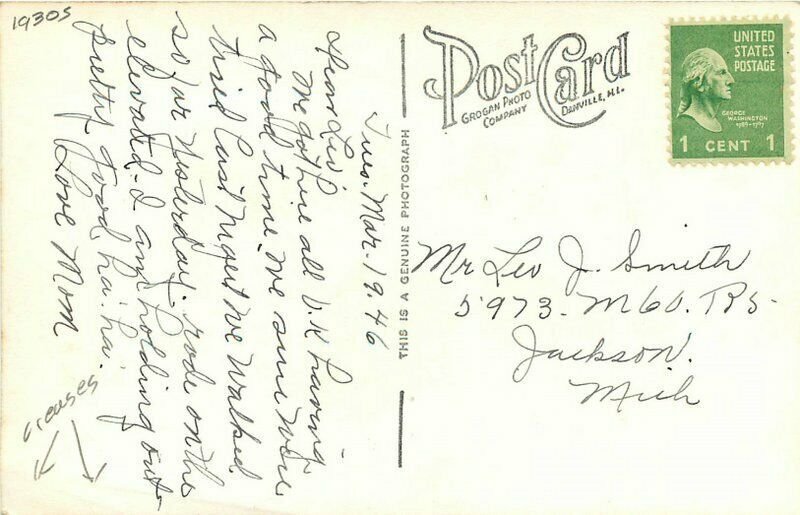 1930s
Tues. Mar. 19. 46
Dear Leo,
We got here all O.K. having
a good time. We sure were
tired last night we walked
so far yesterday. rode on the
elevated. I am holding out
pretty good, ha. ha.
Love Mom
creases
Post Card
GROGAN PHOTO
COMPANY
DANVILLE, ILL.
THIS IS A GENUINE PHOTOGRAPH
UNITED
STATES
POSTAGE
GEORGE
WASHINGTON
1789-1797
1 CENT 1
Mr Leo J. Smith
5973. M60. R5.
Jackson.
Mich